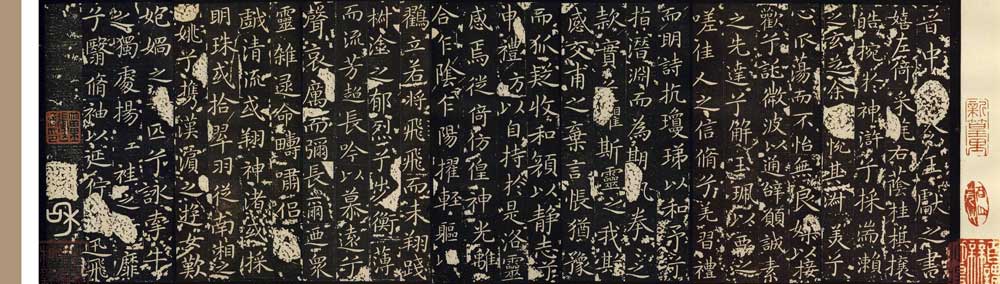 晉中書令王獻之書
嬉左倚采旄右蔭桂旗攘
皓捥於神滸兮採湍瀨
之玄芝余情悅其淑美兮
心振蕩而不怡無良媒以接
歡兮託微波以通辭願誠素
之先達兮解玉珮以要之
嗟佳人之信脩兮羌習禮
而明詩抗瓊珶以和予兮
指潛淵而為期執拳之
款實懼斯靈之我欺
感交甫之棄言悵猶豫
而狐疑收和顏以靜志兮
申禮防以自持於是洛靈
感焉徙倚彷徨神光離
合乍陰乍陽擢輕軀以
鸛立若將飛飛而未翔踐
椒塗之郁烈兮步衡薄
而流芳超長吟以慕遠兮
聲哀厲而彌長爾迺眾
靈雜遝命疇嘯侶或
戲清流或翔神渚或採
明珠或拾翠羽從南湘之
兮攜漢濱之遊女歎
媧之無匹兮詠牽牛
之獨處揚輕袿之靡
兮翳脩袖以延佇迅飛